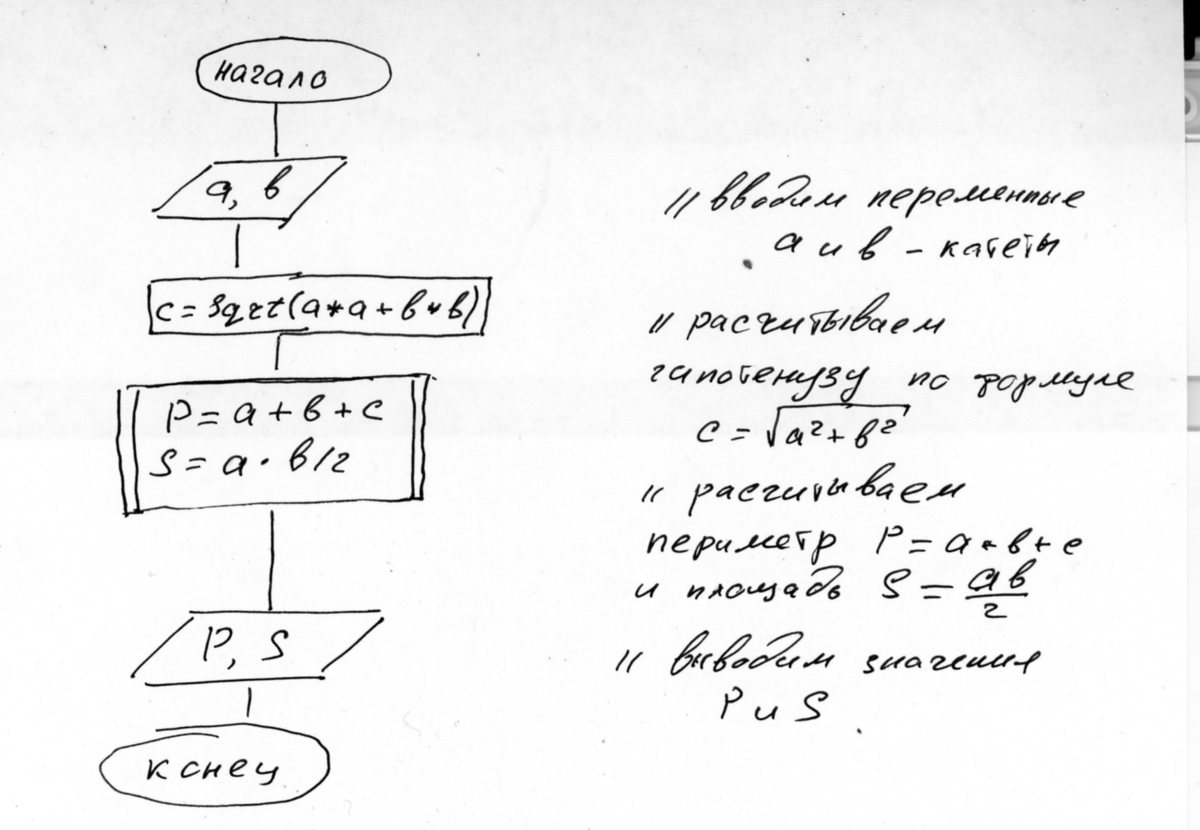 начало
а, в
c = sqrt(a*a + в*в)
P = a + в + c
S = a · в/2
P, S
конец
// вводим переменные
а и в – катеты
// расчитываем
гипотенузу по формуле
c = √a² + в²
// расчитываем
периметр P = a + в + c
и площадь S = ав/2
// выводим значения
P и S